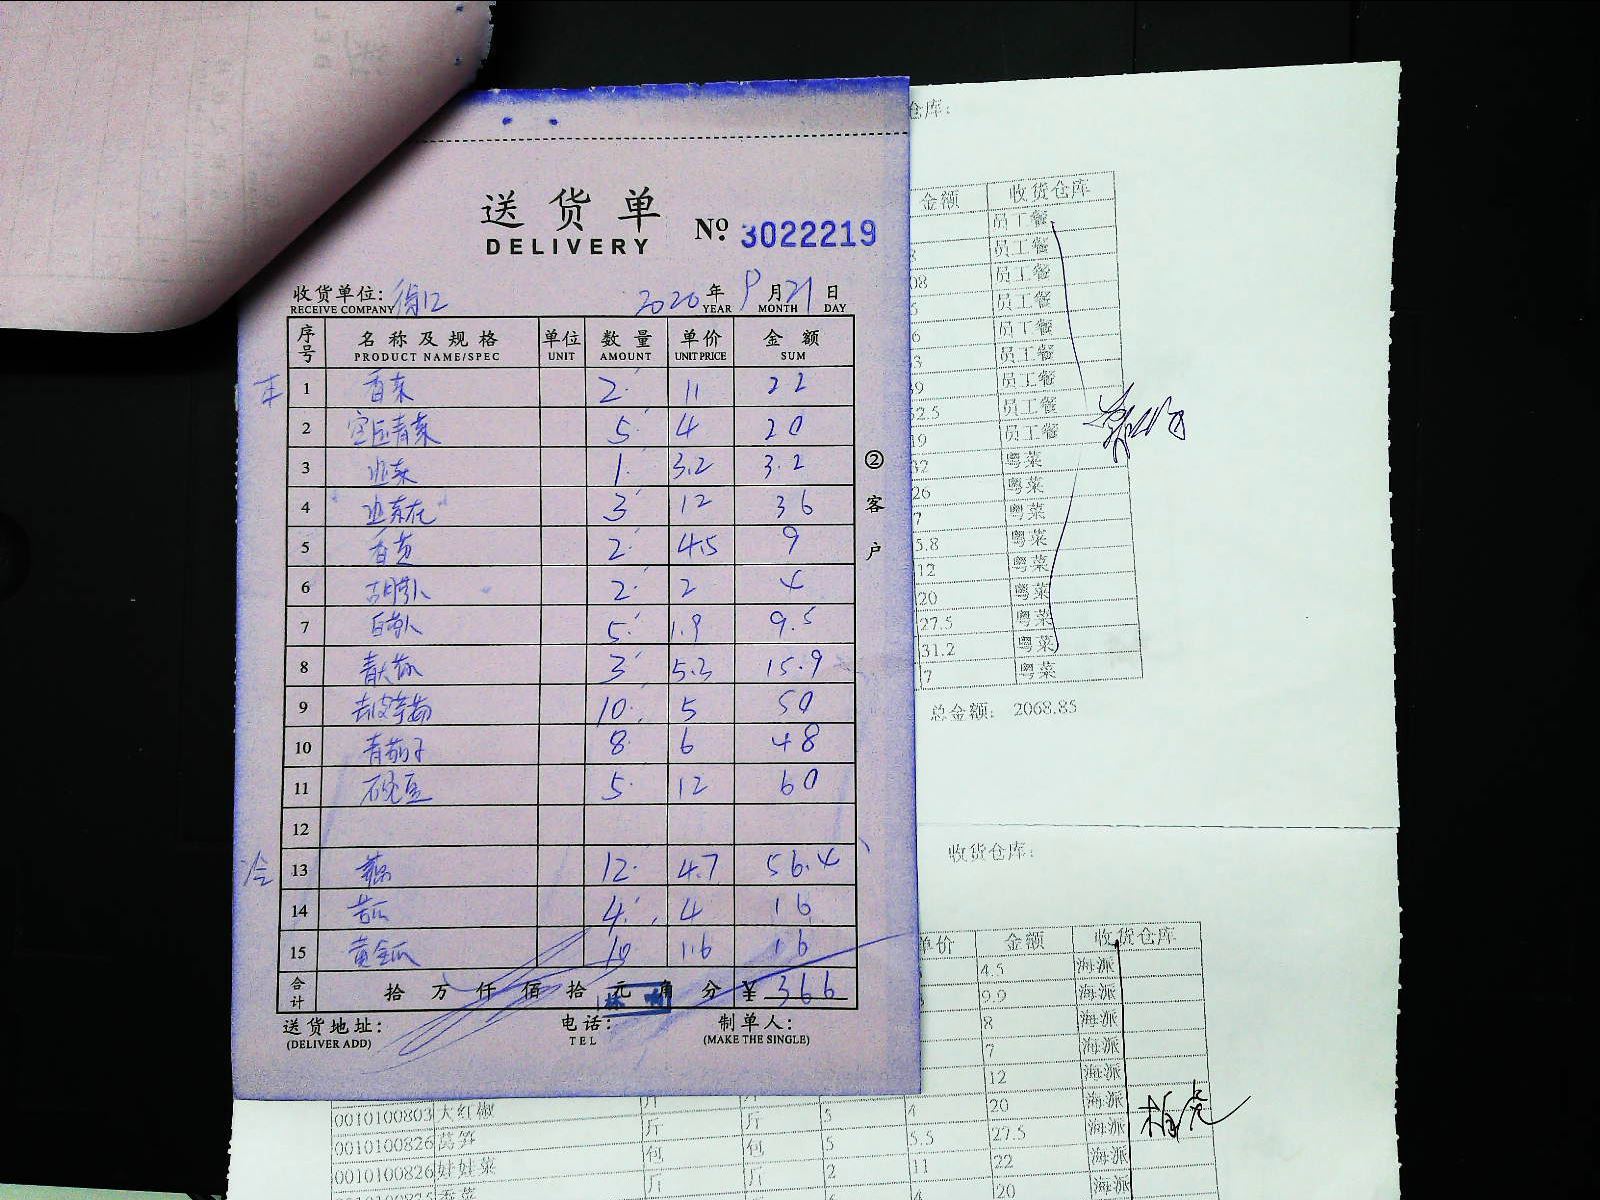 送货单
DELIVERY
№ 3022219
收货单位: 徐汇 2020年9月21日
RECEIVE COMPANY YEAR MONTH DAY
序号 名称及规格 单位 数量 单价 金额
PRODUCT NAME/SPEC UNIT AMOUNT UNIT PRICE SUM
1 香菜 2 11 22
2 5 4 20
3 韭菜 1 3.2 3.2
4 韭菜花 3 12 36
5 2 4.5 9
6 胡萝卜 2 2 4
7 白萝卜 5 1.9 9.5
8 3 5.3 15.9
9 10 5 50
10 青茄子 8 6 48
11 5 12 60
12
冷 13 12 4.7 56.4
14 苦瓜 4 4 16
15 黄金瓜 10 1.6 16
合计 拾万仟佰拾元角分 ¥ 366
送货地址: 电话: 制单人:
(DELIVER ADD) TEL (MAKE THE SINGLE)
② 客户
仓库:
金额 收货仓库
员工餐
员工餐
08 员工餐
员工餐
6 员工餐
员工餐
员工餐
2.5 员工餐
19 员工餐
32 粤菜
26 粤菜
7 粤菜
5.8 粤菜
12 粤菜
20 粤菜
27.5 粤菜
31.2 粤菜
7 粤菜
总金额: 2068.85
收货仓库:
单价 金额 收货仓库
4.5 海派
9.9 海派
8 海派
7 海派
12 海派
0010100803 大红椒 斤 斤 5 4 20 海派
0010100826 莴笋 斤 斤 5 5.5 27.5 海派
0010100826 娃娃菜 包 包 2 11 22 海派
香菜 斤 斤 4 20 海派